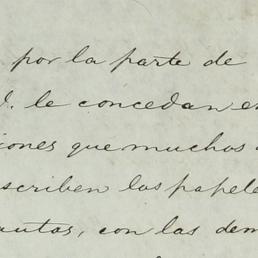 por la parte de
d. le concedan e
ciones que muchos
scriben los papele
autos, con las dem